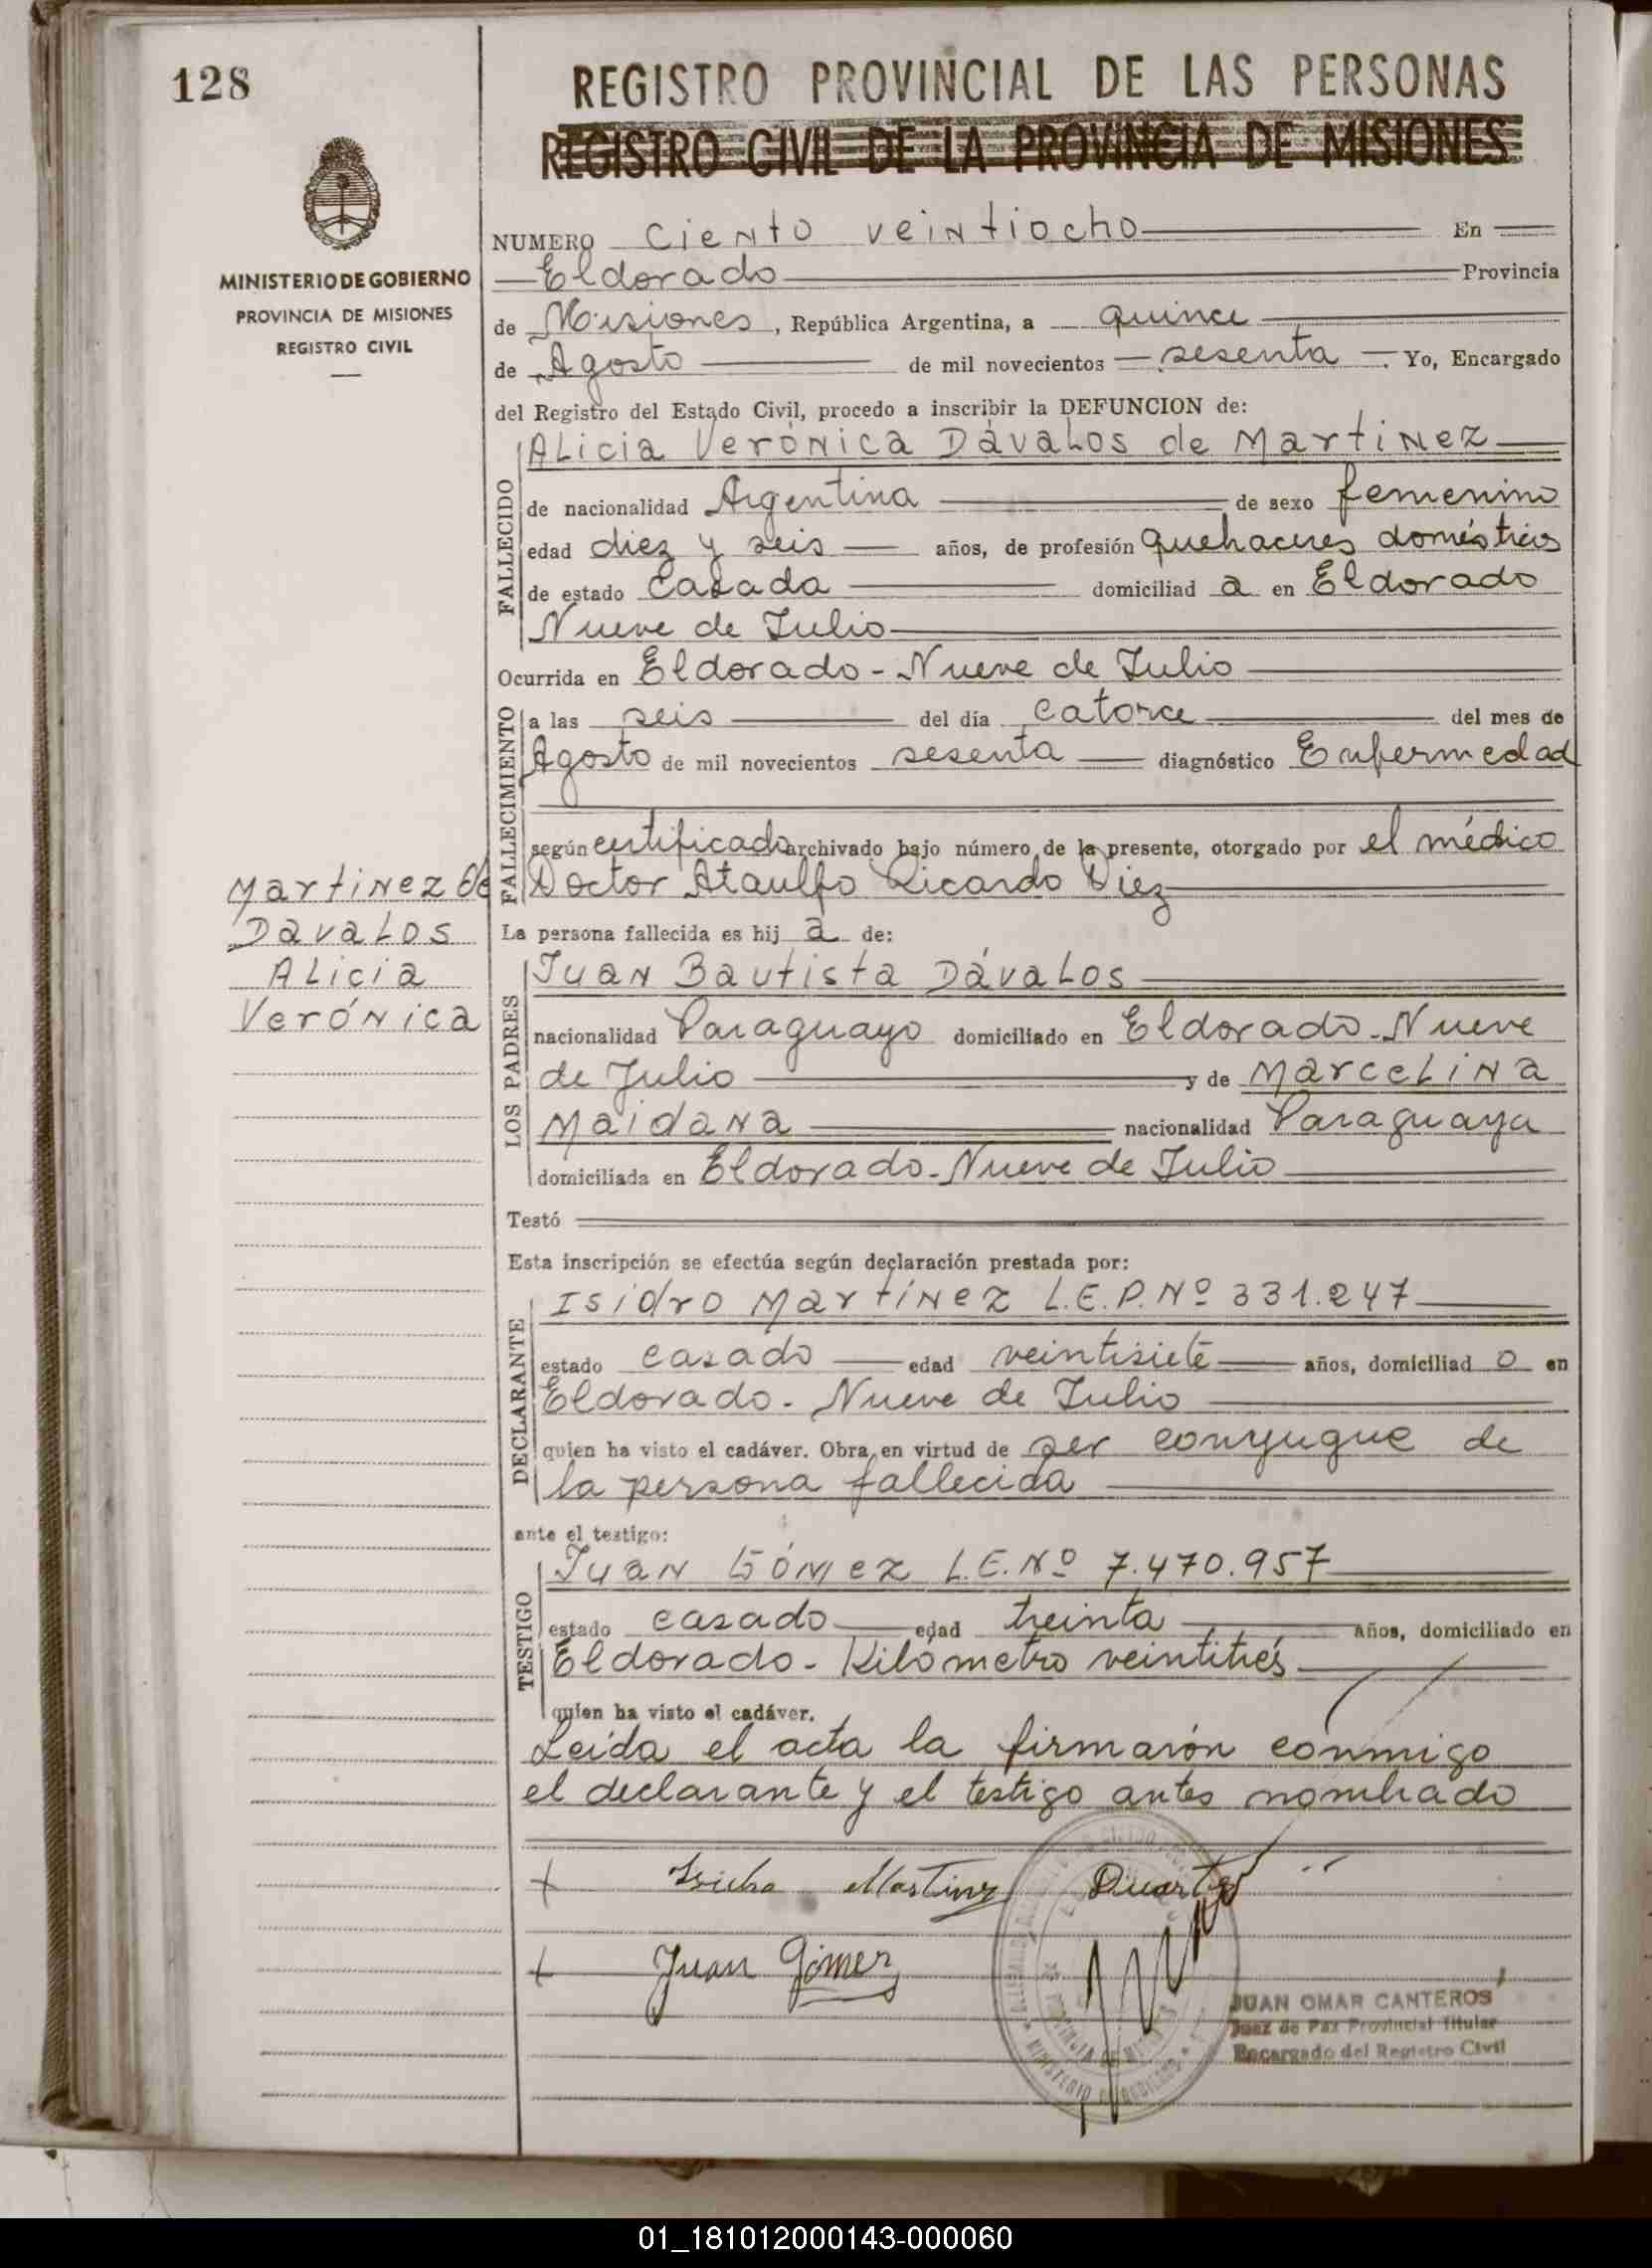 128
REGISTRO PROVINCIAL DE LAS PERSONAS
REGISTRO CIVIL DE LA PROVINCIA DE MISIONES
MINISTERIO DE GOBIERNO
PROVINCIA DE MISIONES
REGISTRO CIVIL
NUMERO Ciento veintiocho En
Eldorado Provincia
de Misiones, República Argentina, a quince
de Agosto de mil novecientos sesenta. Yo, Encargado
del Registro del Estado Civil, procedo a inscribir la DEFUNCION de:
FALLECIDO
Alicia Verónica Dávalos de Martinez
de nacionalidad Argentina de sexo femenino
edad diez y seis años, de profesión quehaceres domésticos
de estado Casada domiciliad a en Eldorado
Nueve de Julio
Ocurrida en Eldorado - Nueve de Julio
FALLECIMIENTO
a las seis del día catorce del mes de
Agosto de mil novecientos sesenta diagnóstico Enfermedad
según certificado archivado bajo número de la presente, otorgado por el médico
Doctor Ataulfo Ricardo Diez
Martinez de
Davalos
Alicia
Verónica
La persona fallecida es hij a de:
LOS PADRES
Juan Bautista Dávalos
nacionalidad Paraguayo domiciliado en Eldorado - Nueve
de Julio y de Marcelina
Maidana nacionalidad Paraguaya
domiciliada en Eldorado - Nueve de Julio
Testó
Esta inscripción se efectúa según declaración prestada por:
DECLARANTE
Isidro Martínez L.E.P.Nº 331.247
estado casado edad veintisiete años, domiciliad o en
Eldorado - Nueve de Julio
quien ha visto el cadáver. Obra en virtud de ser conyugue de
la persona fallecida
ante el testigo:
TESTIGO
Juan Gómez L.E.Nº 7.470.957
estado casado edad treinta años, domiciliado en
Eldorado - Kilómetro veintitrés
quien ha visto el cadáver.
Leída el acta la firmarón conmigo
el declarante y el testigo antes nombrado
Martinez Duarte
Juan Gómez
JUAN OMAR CANTEROS
Juez de Paz Provincial Titular
Encargado del Registro Civil
01_181012000143-000060